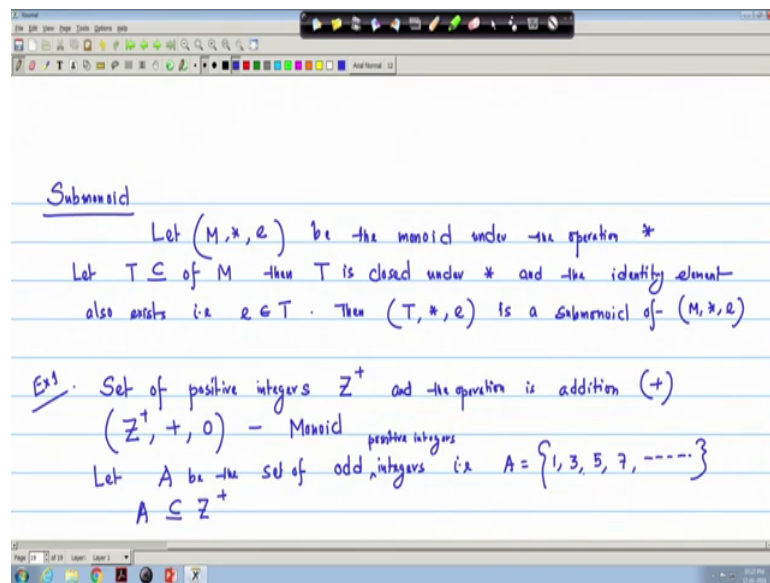 Journal
File Edit View Page Tools Options Help
Arial Normal 12
Submonoid
Let (M, *, e) be the monoid under the operation *
Let T ⊆ of M then T is closed under * and the identity element
also exists i.e e ∈ T. Then (T, *, e) is a submonoid of (M, *, e)
Ex1. Set of positive integers Z⁺ and the operation is addition (+)
(Z⁺, +, 0) - Monoid
Let A be the set of odd ^ positive integers integers i.e A = {1, 3, 5, 7, ------}
A ⊆ Z⁺
Page 19 of 19 Layer: Layer 1